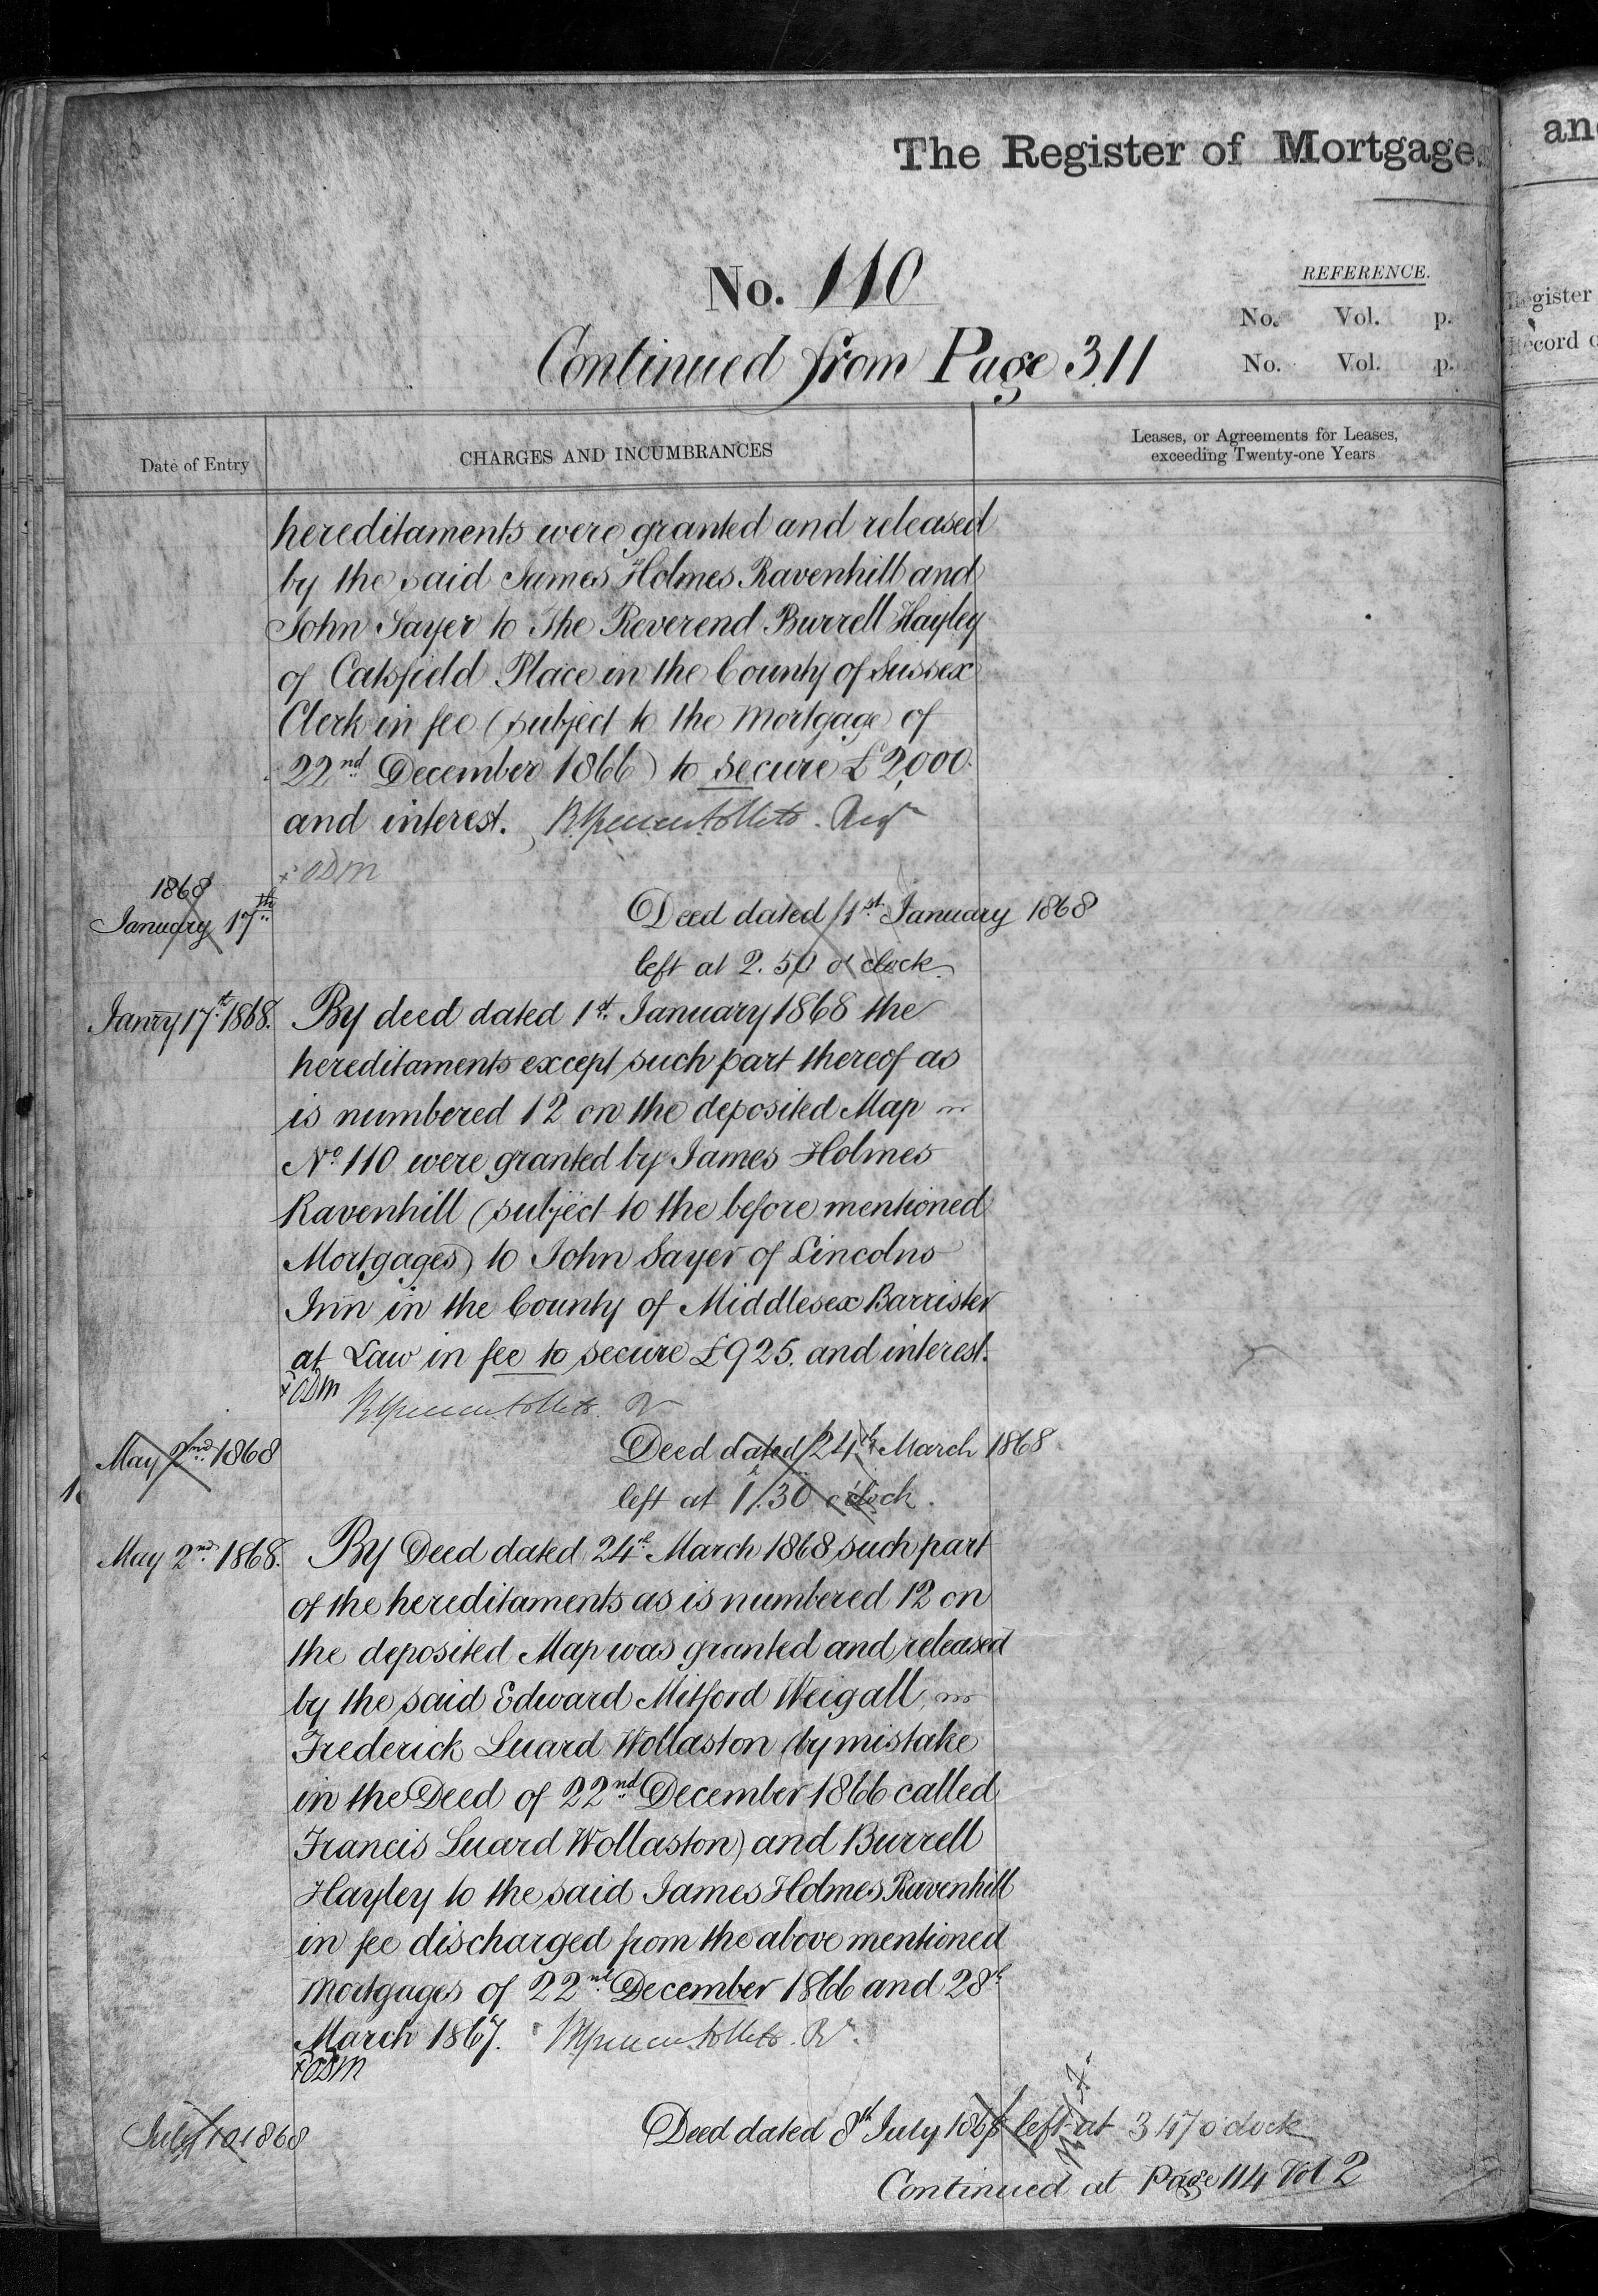 The Register of Mortgages
an
No. 110
REFERENCE.
No. Vol. p.
No. Vol. p.
gister
ecord o
Continued from Page 311
Date of Entry
CHARGES AND INCUMBRANCES
Leases, or Agreements for Leases,
exceeding Twenty-one Years
hereditaments were granted and released
by the said James Holmes Ravenhill and
John Sayer to The Reverend Burrell Hayley
of Catsfield Place in the County of Sussex
Clerk in fee (subject to the Mortgage of
22nd December 1866) to secure £2,000.
and interest.
x ODM
1868
January 17th
Deed dated 1st January 1868
left at 2.50 o'clock
Janry 17th 1868. By deed dated 1st January 1868 the
hereditaments except such part thereof as
is numbered 12 on the deposited Map
No 110 were granted by James Holmes
Ravenhill (subject to the before mentioned
Mortgages) to John Sayer of Lincolns
Inn in the County of Middlesex Barrister
at Law in fee to secure £925. and interest.
x ODM
May 2nd 1868
Deed dated 24th March 1868
left at 1.30 o'clock.
May 2nd 1868. By Deed dated 24th March 1868 such part
of the hereditaments as is numbered 12 on
the deposited Map was granted and released
by the said Edward Mitford Weigall
Frederick Luard Wollaston (by mistake
in the Deed of 22nd December 1866 called
Francis Luard Wollaston) and Burrell
Hayley to the said James Holmes Ravenhill
in fee discharged from the above mentioned
Mortgages of 22nd December 1866 and 28th
March 1867.
x ODM
July 10 1868
Deed dated 8th July 1868 left at 3 47 o'clock
Continued at Page 114 Vol 2